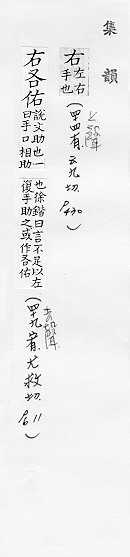 集韻
右左右手也（四四有云九切
P430
上聲
右各佑說文助也一曰手口相助也徐鍇曰言不足以左復手助之或作各佑
（四九宥尤救切
P611
去聲